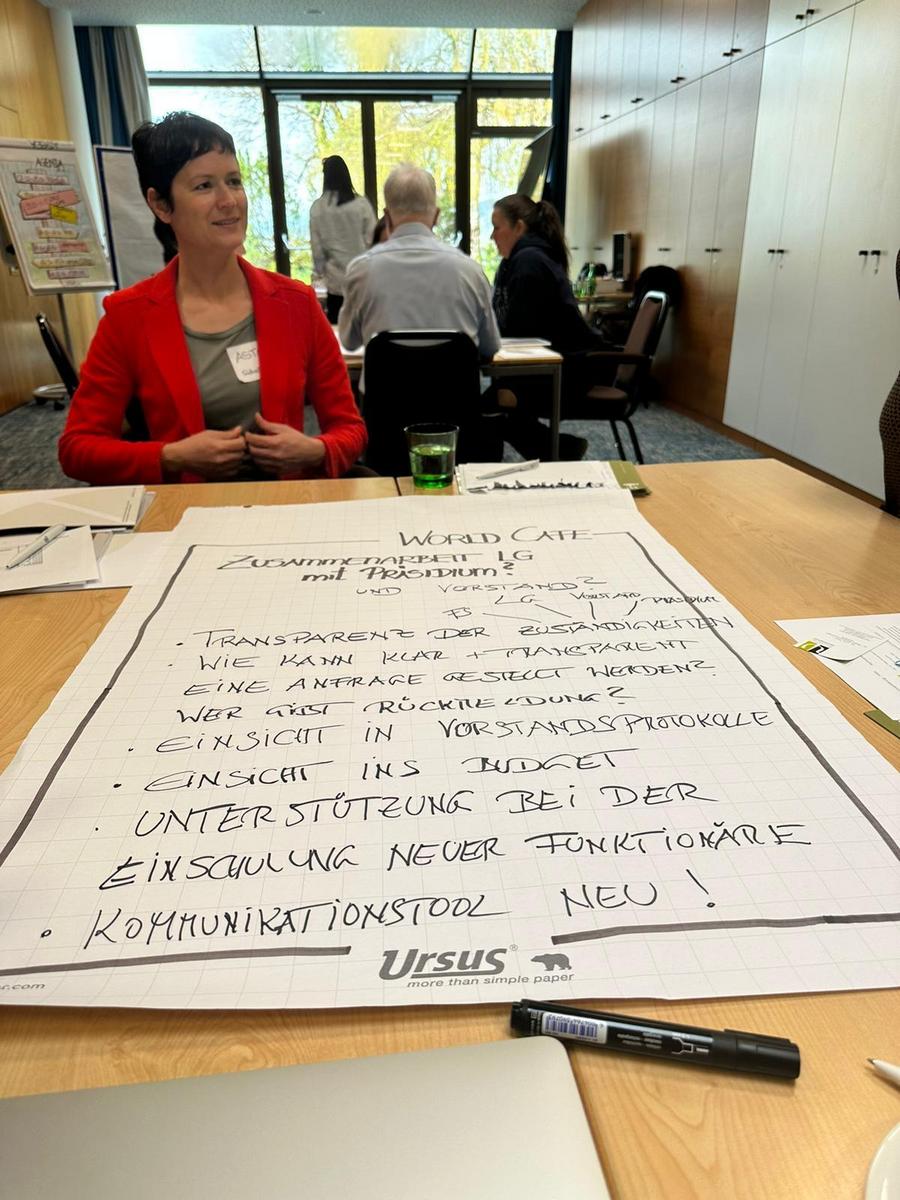 AGENDA
AST
WORLD CAFE
ZUSAMMENARBEIT LG
mit PRÄSIDIUM?
UND VORSTAND?
FS LG VORSTAND PRÄSIDIUM
· TRANSPARENZ DER ZUSTÄNDIGKEITEN
· WIE KANN KLAR + TRANSPARENT
EINE ANFRAGE GESTELLT WERDEN?
WER GIBT RÜCKMELDUNG?
· EINSICHT IN VORSTANDSPROTOKOLLE
· EINSICHT INS BUDGET
· UNTERSTÜTZUNG BEI DER
EINSCHULUNG NEUER FUNKTIONÄRE
· KOMMUNIKATIONSTOOL NEU!
Ursus®
more than simple paper